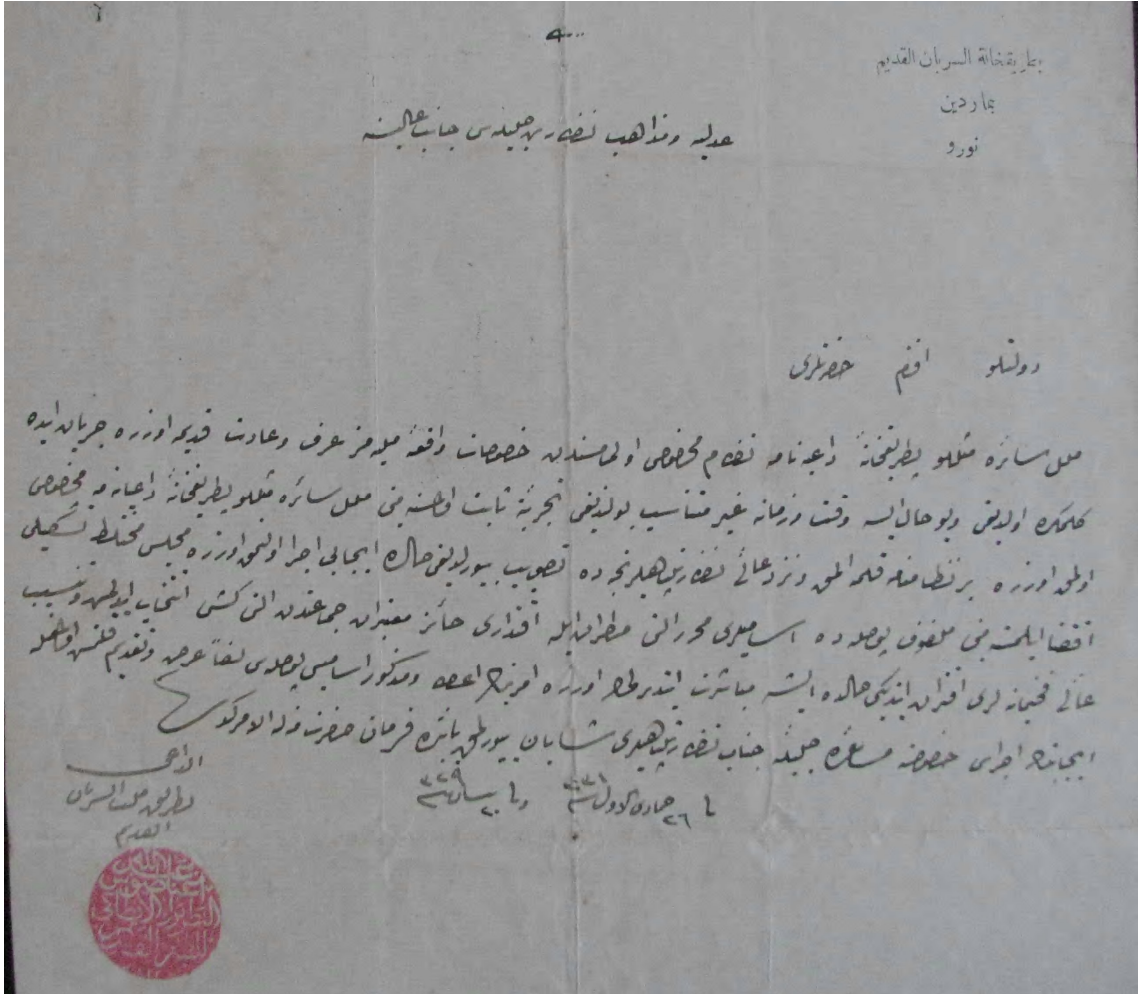 بطريقخانة السريان القديم
بماردين
نورو
عدليه ومذاهب نظارت جليله‌سى جانب عاليسنه
دولتلو افندم حضرتلرى
ملل سائره مثللو بطريقخانه نظام مخصوصى اولمامسندن خصوصات واقعهٔ مليه‌مز عرف وعادت قديمه اوزره جريان ايده
كلمكده اولديغى وبو حال ايسه وقت وزمانه غير متناسب بولنديغى تجربةً ثابت اولمسنه مبنى ملل سائره مثللو بطريقخانه مخصوصى
اولمق اوزره بر نظامنامه قلمه المق ونزد عالئ نظارتپناهيلرنجه ده تصويب بيورلديغى حالده ايجابى اجرا اولنمق اوزره مجلس مختلط تشكيلى
اقتضا ايلمسنه مبنى ملفوف پوصله ده اساميلرى محرر التى مطران ايله اقتدارى حائز معتبران جماعتدن التى كشى انتخاب وتنسيب
عالئ فخيمانه لرى اقتران ايتديكى حالده ايشه مباشرت ايتديرلمك اوزره اعضا ومذكور اسامى پوصله‌سى لفاً عرض وتقديم قلنمش اولمغله
ايجابنك اجراسى خصوصنه مساعدهٔ جليلهٔ جناب نظارتپناهيلرى شايان بيورلمق بابنده فرمان حضرت من له الامركدر
فى ٢٦ جمادى الاول سنه ٣٣١ وفى ٢٠ نيسان سنه ٣٢٩
الداعى
بطريق ملت السريان
القديم